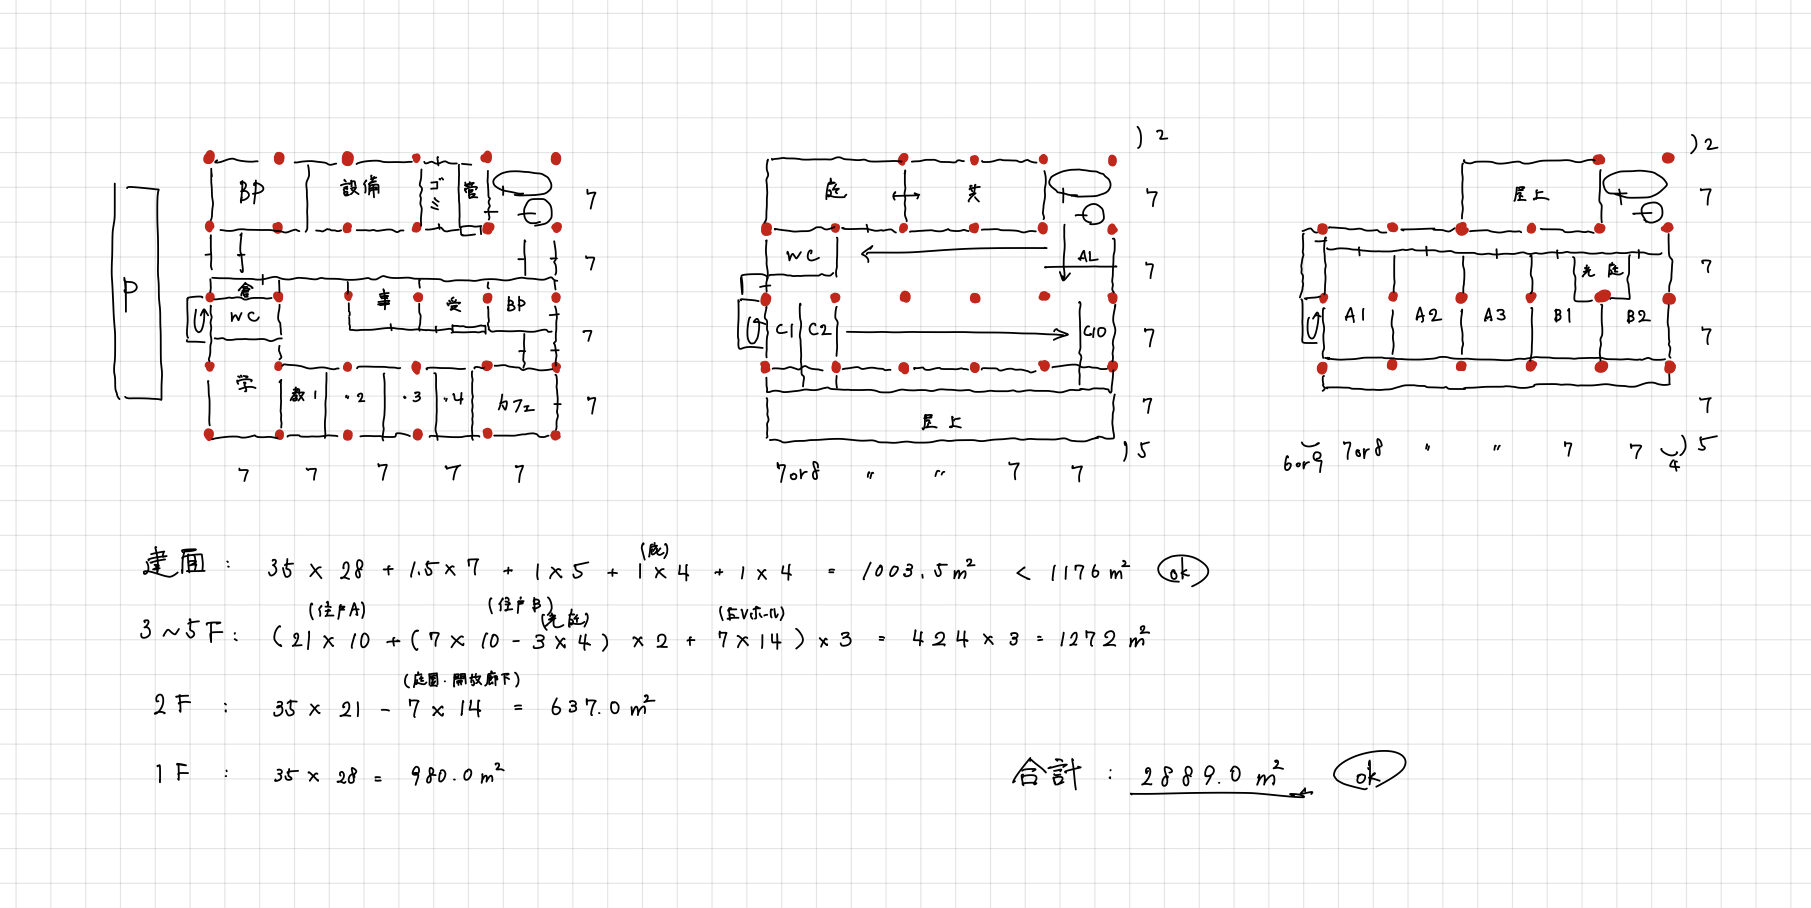 P
BP 設備 ゴミ 管 7
7
倉 事 受 BP
WC 7
学 教1 ・2 ・3 ・4 カフェ 7
7 7 7 7 7
)2
庭 ↔ 共 7
WC ← AL 7
C1 C2 → C10 7
屋上 7
7or8 〃 〃 7 7 )5
)2
屋上 7
光庭 7
A1 A2 A3 B1 B2 7
7
6or9 7or8 〃 〃 7 7 4 )5
(庇)
建面: 35 × 28 + 1.5 × 7 + 1 × 5 + 1 × 4 + 1 × 4 = 1003.5m² < 1176m² ok
(住戸A) (住戸B) (光庭) (EVホール)
3~5F: (21 × 10 + (7 × 10 - 3 × 4) × 2 + 7 × 14) × 3 = 424 × 3 = 1272m²
(庭園・開放廊下)
2F: 35 × 21 - 7 × 14 = 637.0m²
1F: 35 × 28 = 980.0m²
合計: 2889.0m² ok